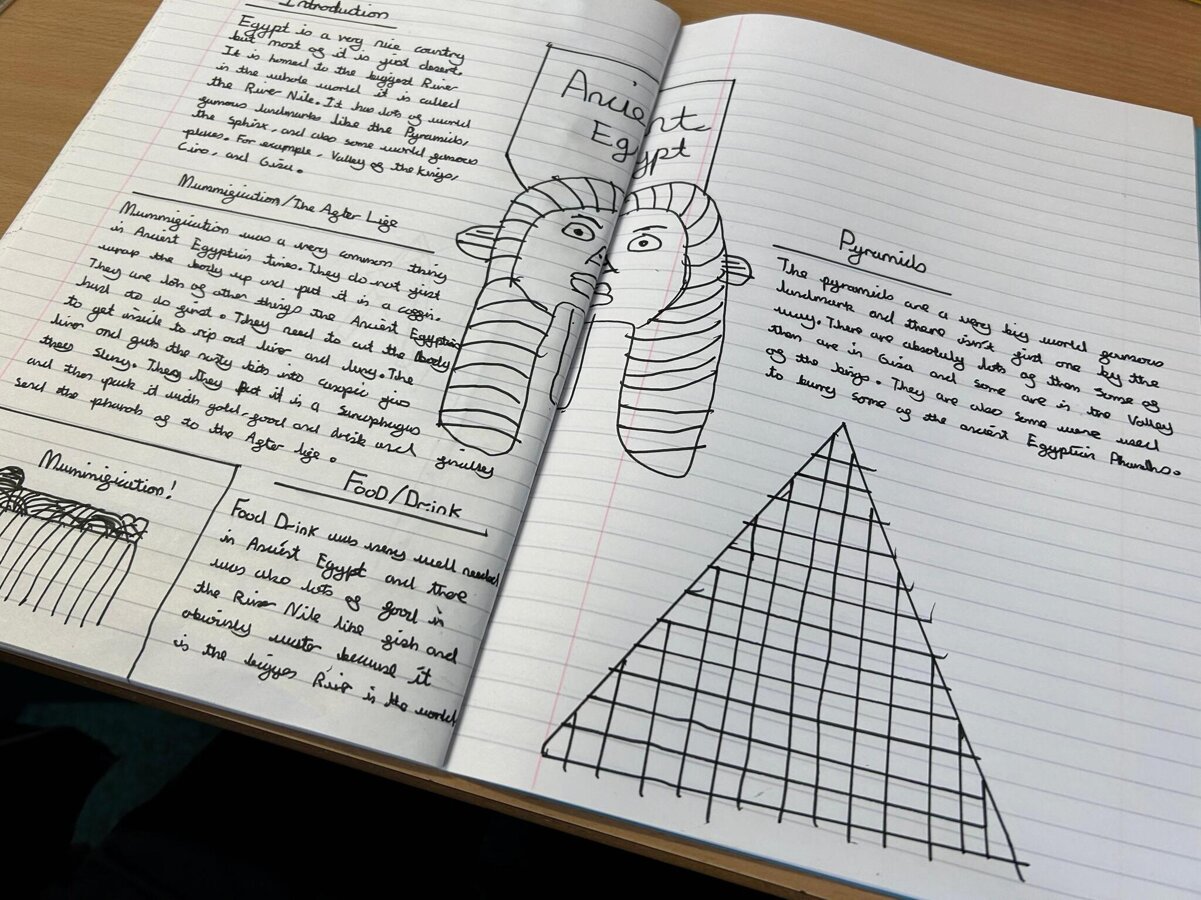 Introduction
Egypt is a very nice country
but most of it is just desert.
It is homed to the biggest River
in the whole world it is called
the River Nile. It has lots of world
famous landmarks like the Pyramids,
the Sphinx, and also some world famous
places. For example, Valley of the Kings,
Ciro, and Giza.
Mummification/The After Life
Mummification was a very common thing
in Ancient Egyptian times. They do not just
wrap the body up and put it in a coffin.
They are lots of other things the Ancient Egyptians
had to do first. They need to cut the body
to get inside to rip out liver and lung. The
liver and guts the nasty bits into canopic jars
they Slung. They They Put it in a Sarcophagus
and then pack it with gold, food and drink and finally
send the pharoh of to the After life.
Mummification!
FooD/Drink
Food Drink was very well needed
in Ancient Egypt and there
was also lots of food in
the River Nile like fish and
obviously water because it
is the bigges River in the world
Ancient
Egypt
Pyramids
The pyramids are a very big world famous
landmark and there isn't just one by the
way. There are absoluty lots of them some of
them are in Giza and some are in the Valley
of the kings. They are also some were used
to burry some of the ancient Egyptian Pharohs.